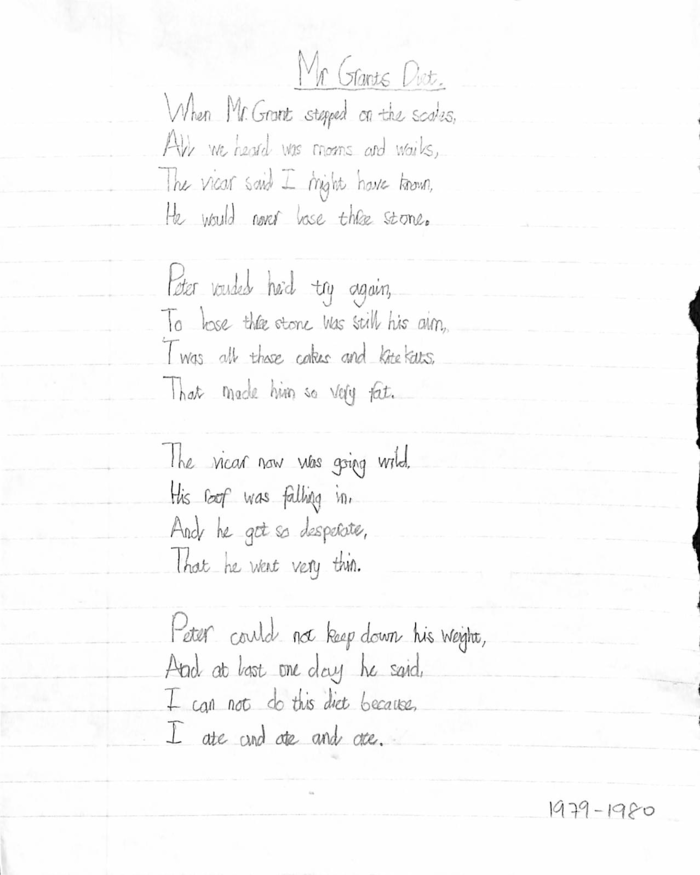 Mr Grants Diet.
When Mr. Grant stepped on the scales,
All we heard was moans and wails,
The vicar said I might have known,
He would never lose three stone.
Peter vouded he'd try again,
To lose three stone was still his aim,
Twas all those cakes and kite kats,
That made him so very fat.
The vicar now was going wild.
His roof was falling in.
And he got so desperate,
That he went very thin.
Peter could not keep down his weight,
And at last one day he said,
I can not do this diet because,
I ate and ate and ate.
1979-1980